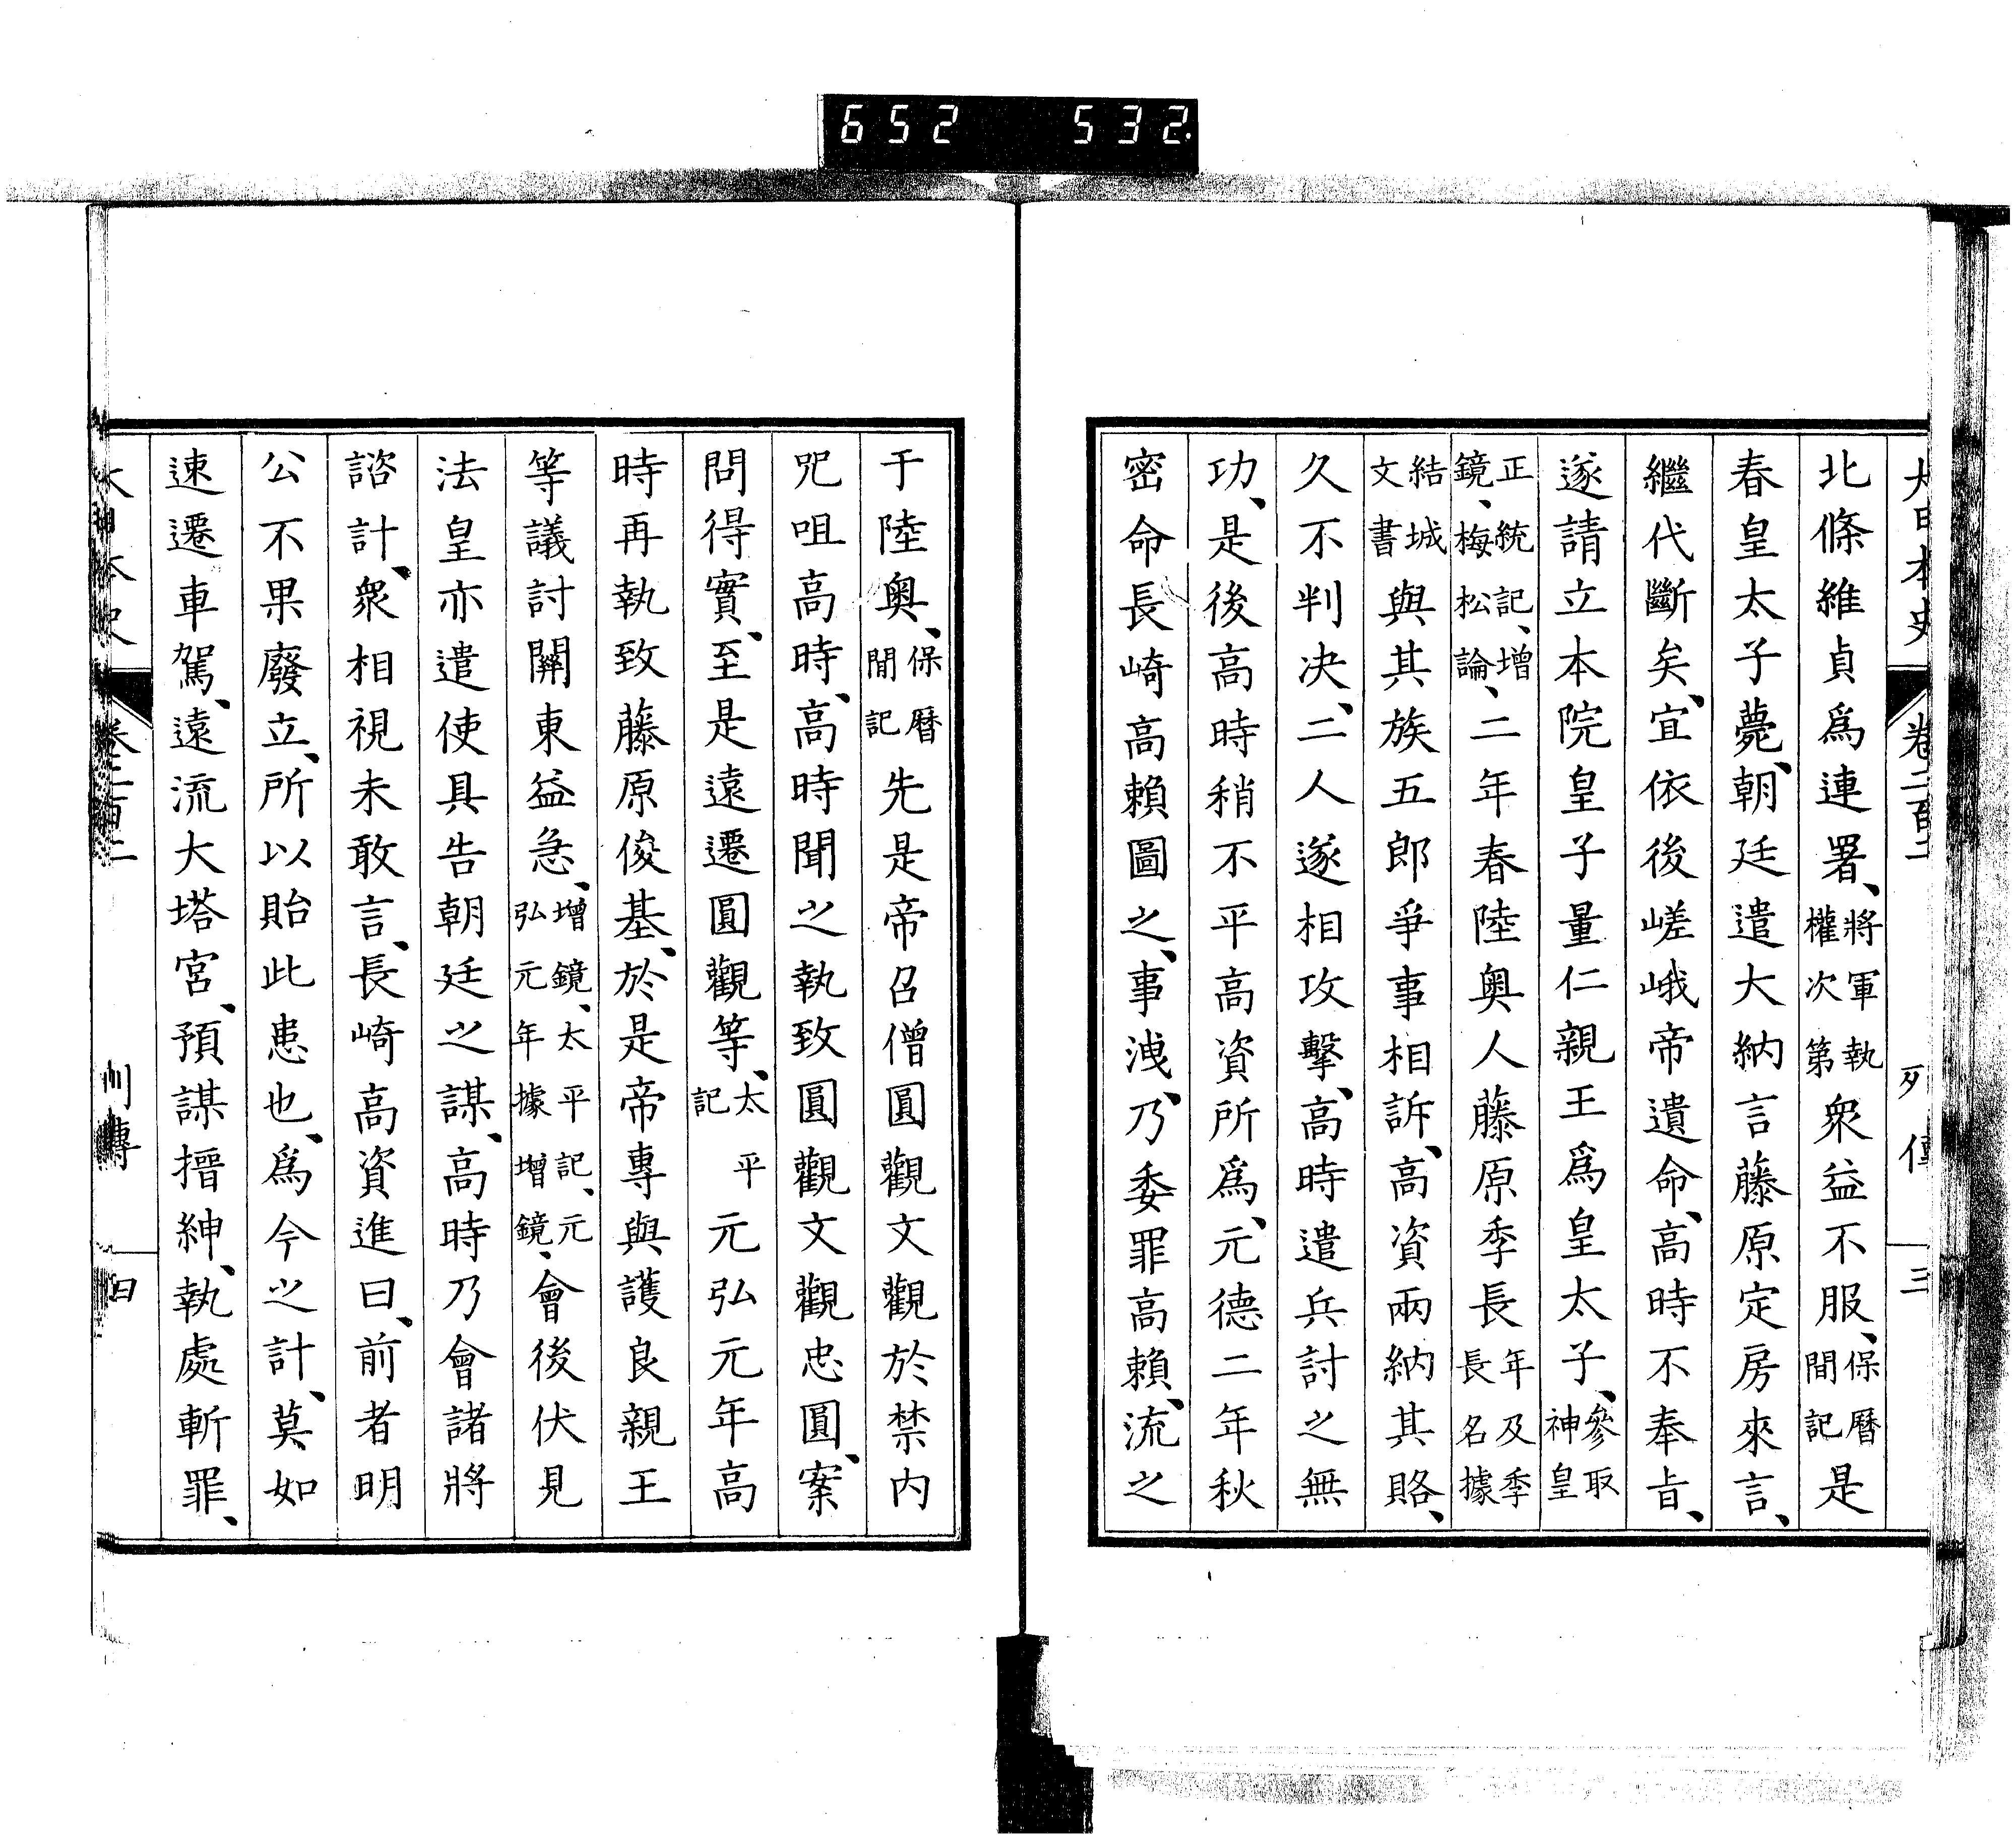 652 532
大日本史 卷二百二 列傳 三
北條維貞爲連署、將軍執權次第衆益不服、保曆間記是
春皇太子薨、朝廷遣大納言藤原定房來言、
繼代斷矣、宜依後嵯峨帝遺命、高時不奉旨、
遂請立本院皇子量仁親王爲皇太子、參取神皇
正統記、增鏡、梅松論、二年春陸奥人藤原季長年及季長名據
結城文書與其族五郎爭事相訴、高資兩納其賂、
久不判決、二人遂相攻擊、高時遣兵討之無
功、是後高時稍不平高資所爲、元德二年秋
密命長崎高賴圖之、事洩、乃委罪高賴、流之
于陸奥、保曆間記先是帝召僧圓觀文觀於禁內
咒咀高時、高時聞之執致圓觀文觀忠圓、案
問得實、至是遠遷圓觀等、太平記元弘元年高
時再執致藤原俊基、於是帝專與護良親王
等議討關東益急、增鏡、太平記、元弘元年據增鏡、會後伏見
法皇亦遣使具告朝廷之謀、高時乃會諸將
諮計、衆相視未敢言、長崎高資進曰、前者明
公不果廢立、所以貽此患也、爲今之計、莫如
速遷車駕、遠流大塔宮、預謀搢紳、執處斬罪、
大日本史 卷二百二 列傳 四